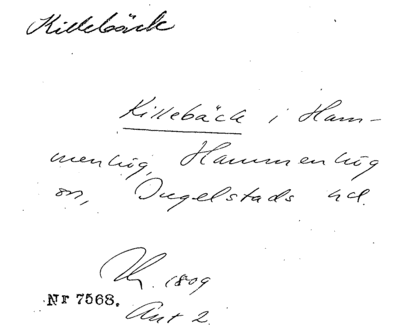 Killebäck
Killebäck i Ham-
menhög, Hammenhög
sn, Ingelstads hd.
1809
Nr 7568.
Ant 2